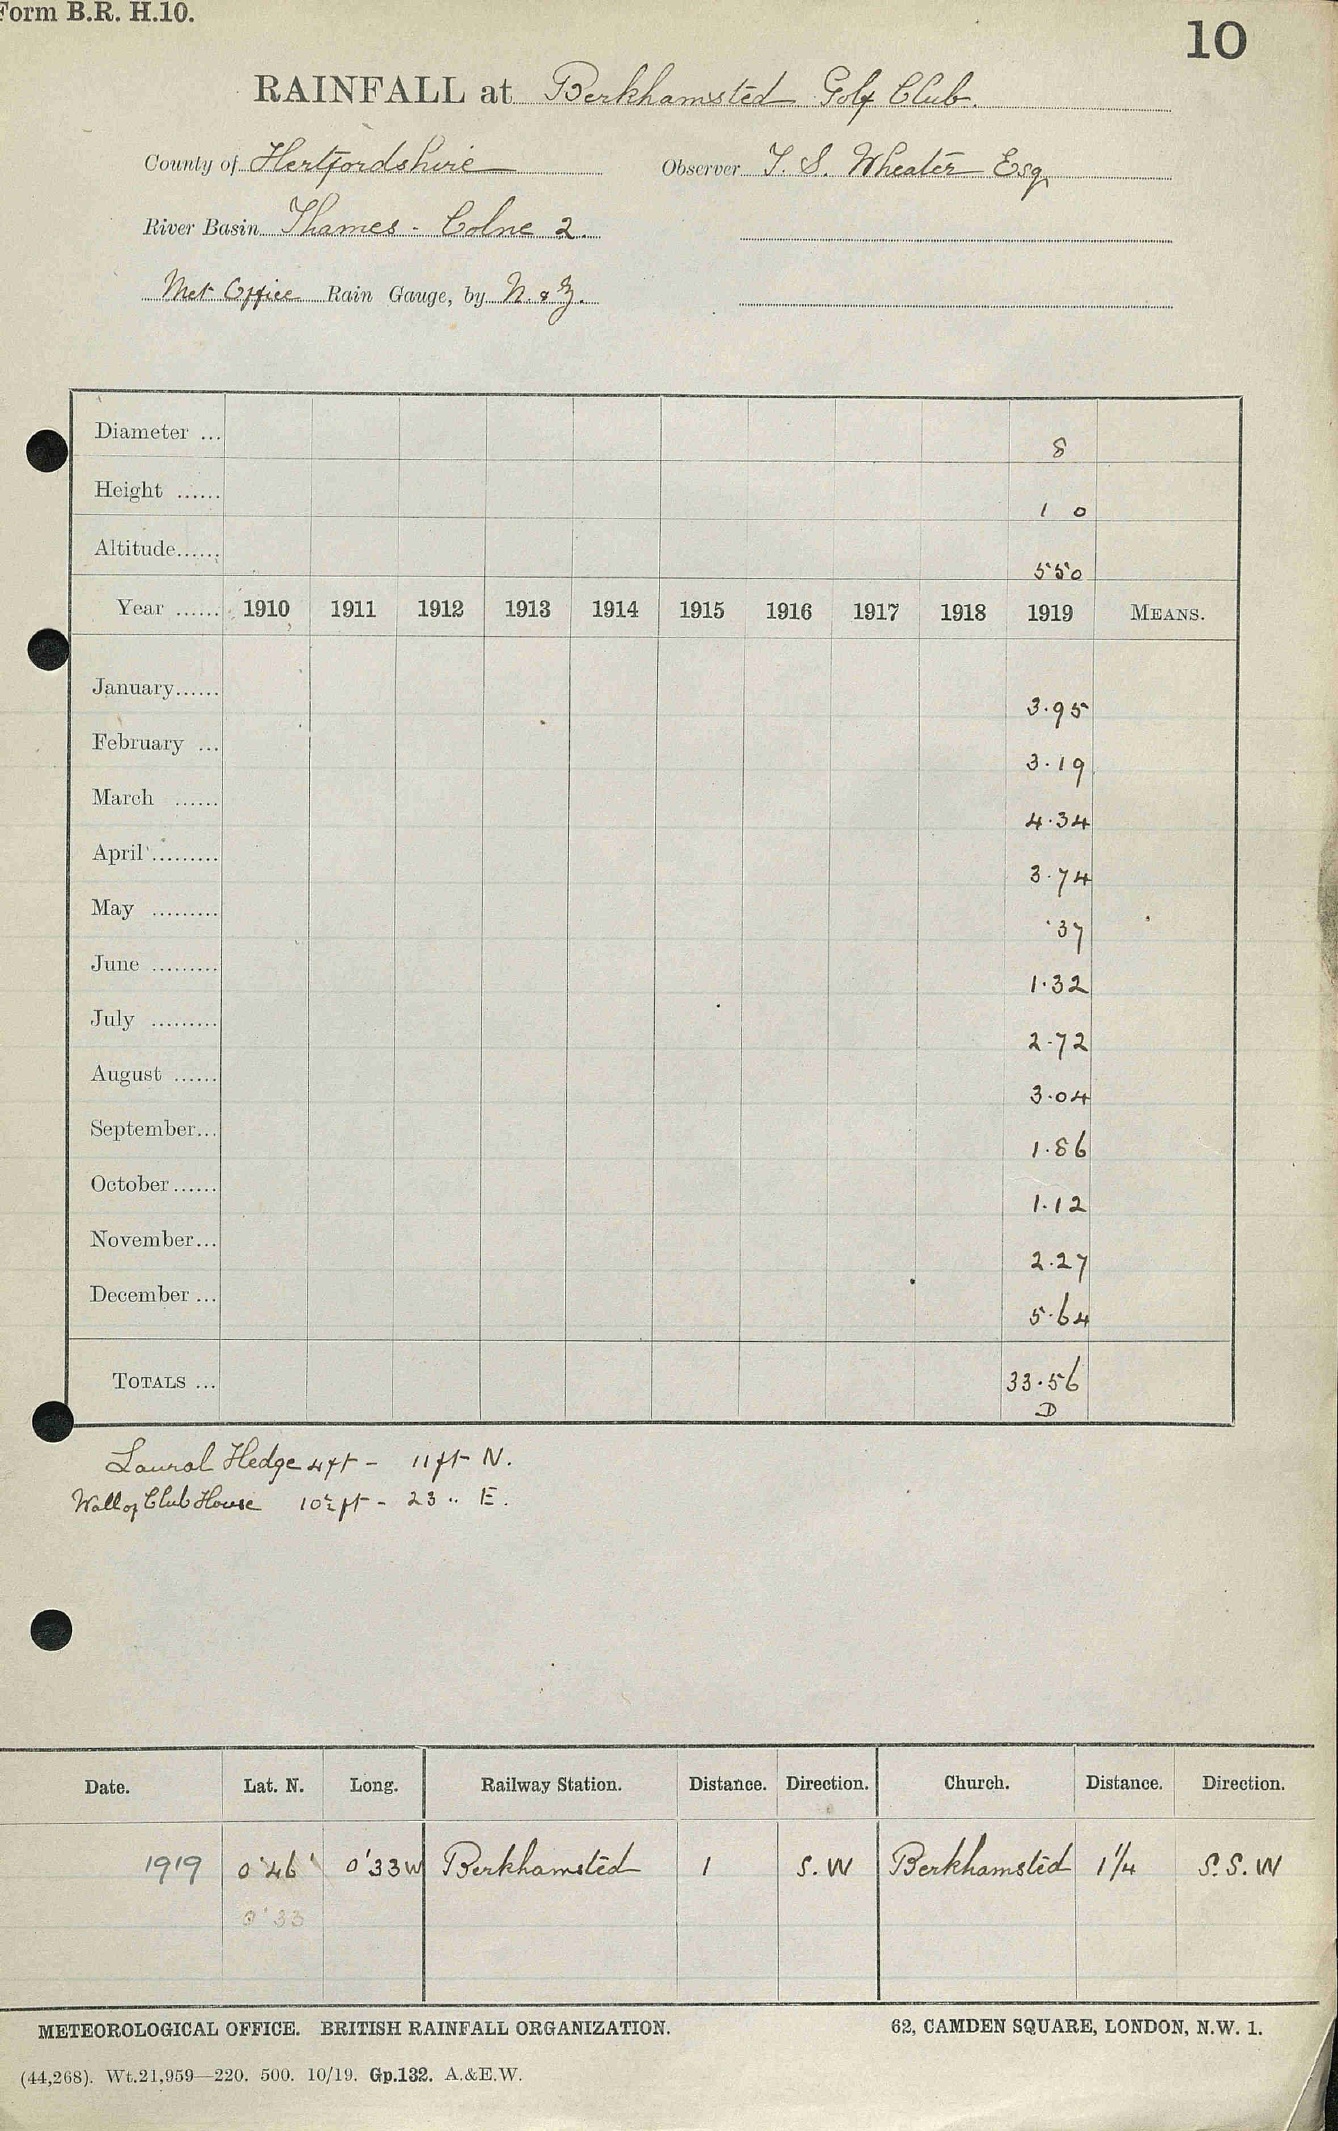 Form B.R. H.10.
10
RAINFALL at Berkhamsted Golf Club.
County of Hertfordshire Observer T. S. Wheater Esq
River Basin Thames - Colne 2.
Met Office Rain Gauge, by N. & Z.
Diameter ... 8
Height ...... 1 0
Altitude...... 550
Year ...... 1910 1911 1912 1913 1914 1915 1916 1917 1918 1919 MEANS.
January...... 3.95
February ... 3.19
March ...... 4.34
April ......... 3.74
May ......... .37
June ......... 1.32
July ......... 2.72
August ...... 3.04
September... 1.86
October...... 1.12
November... 2.27
December ... 5.64
TOTALS ... 33.56
D
Laural Hedge 4ft - 11ft N.
Wall of Club House 10½ft - 23 .. E.
Date. Lat. N. Long. Railway Station. Distance. Direction. Church. Distance. Direction.
1919 0°46' 0°33W Berkhamsted 1 S.W Berkhamsted 1¼ S.S.W
0°33
METEOROLOGICAL OFFICE. BRITISH RAINFALL ORGANIZATION. 62, CAMDEN SQUARE, LONDON, N.W. 1.
(44,268). Wt.21,959—220. 500. 10/19. Gp.132. A.&E.W.